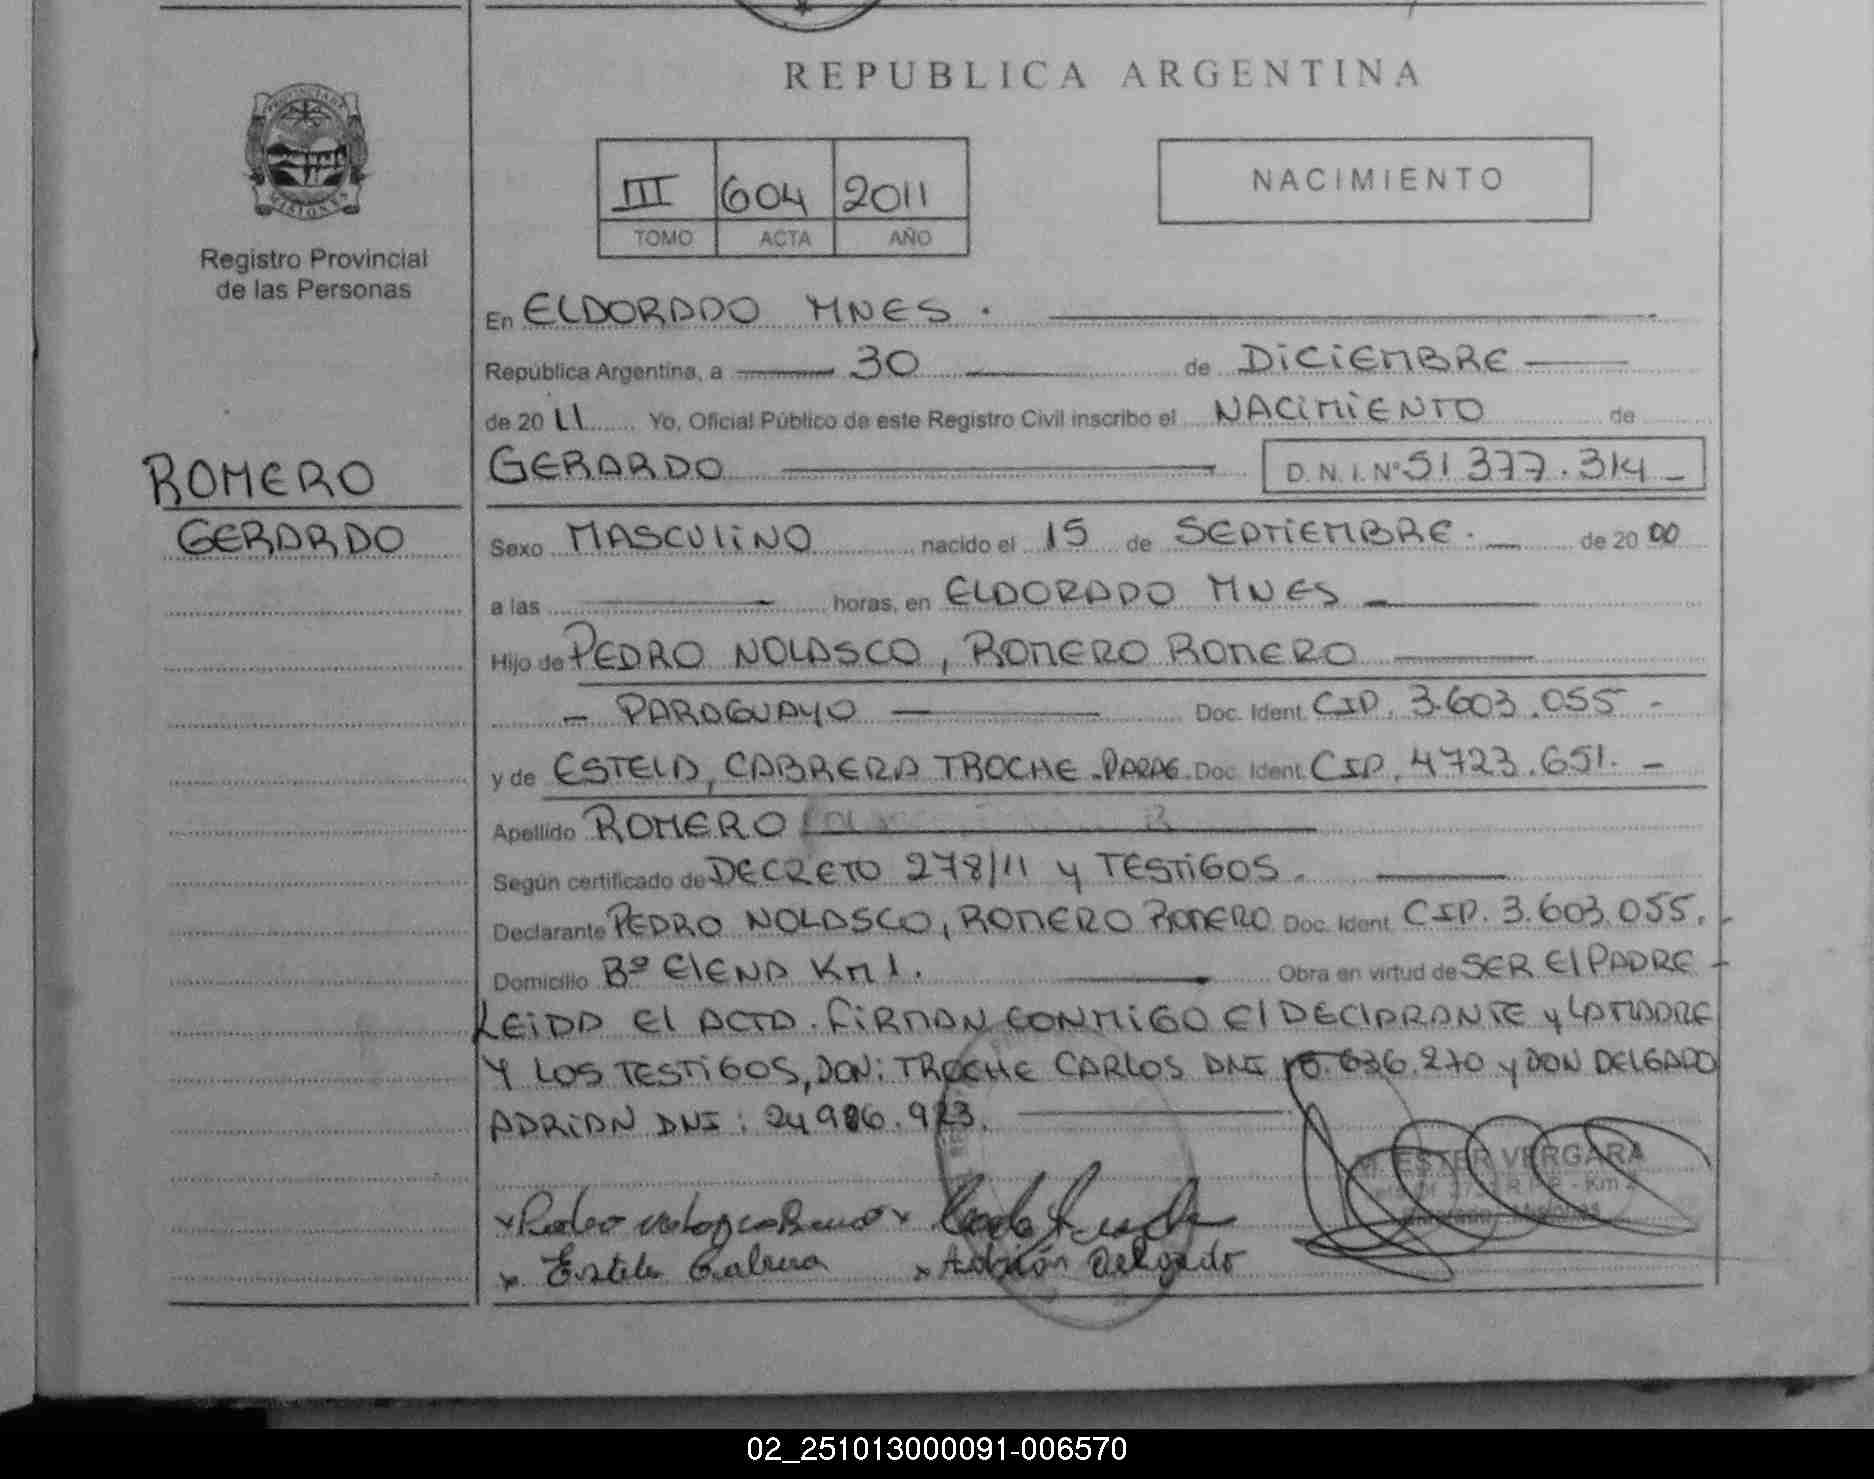 REPUBLICA ARGENTINA
PROVINCIA DE
MISIONES
Registro Provincial
de las Personas
III 604 2011
TOMO ACTA AÑO
NACIMIENTO
En ELDORADO MNES.
República Argentina, a 30 de DICIEMBRE
de 20 11 Yo, Oficial Público de este Registro Civil inscribo el NACIMIENTO de
ROMERO
GERARDO
GERARDO D.N.I. Nº 51 377.314
Sexo MASCULINO nacido el 15 de SEPTIEMBRE. de 20 00
a las horas, en ELDORADO MNES
Hijo de PEDRO NOLASCO, ROMERO ROMERO
- PARAGUAYO Doc. Ident. CIP. 3.603.055 -
y de ESTELA, CABRERA TROCHE.PARAG. Doc. Ident. CIP. 4723.651. -
Apellido ROMERO
Según certificado de DECRETO 278/11 y TESTIGOS.
Declarante PEDRO NOLASCO, ROMERO ROMERO Doc. Ident. CIP. 3.603.055.
Domicilio Bº ELENA Km 1. Obra en virtud de SER El PADRE -
LEIDA El ACTA. FIRMAN CONMIGO El DECLARANTE y LA MADRE
Y LOS TESTIGOS, DON: TROCHE CARLOS DNI .636.270 y DON DELGADO
ADRIAN DNI: 24 986.923.
M. ESTER VERGARA
x Pedro x
x Estela Cabrera x Adrián Delgado
02_251013000091-006570